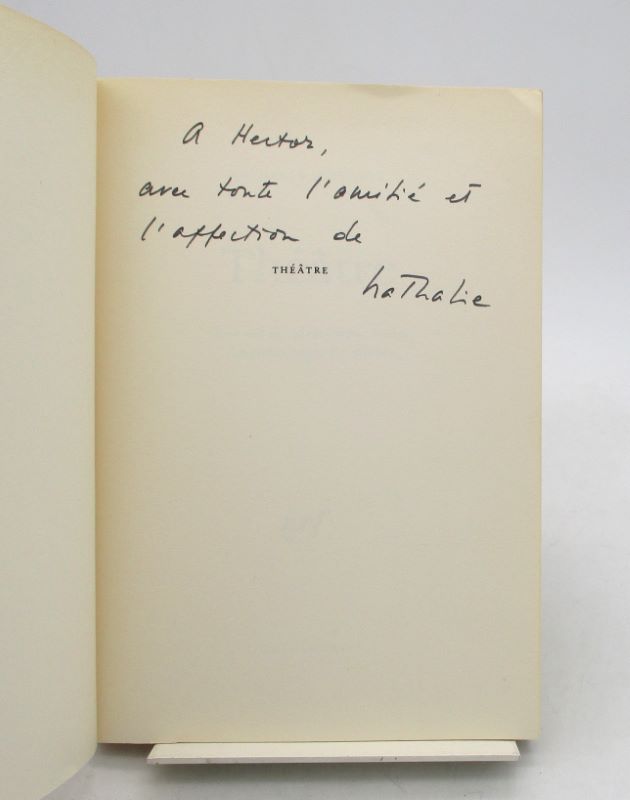 A Hector,
avec toute l'amitié et
l'affection de
THÉÂTRE
Nathalie